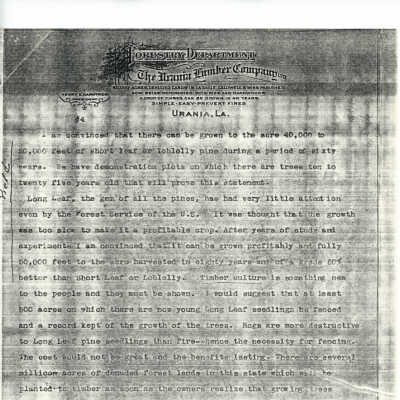 FORESTRY DEPARTMENT
The Urania Lumber Company
SIMPLE-EASY-PREVENT FIRES
URANIA, LA.
#4
I am convinced that there can be grown to the acre 40,000 to
50,000 feet of short leaf or loblolly pine during a period of sixty
years. We have demonstration plots on which there are trees ten to
twenty five years old that will prove this statement.
Long Leaf, the gem of all the pines, has had very little attention
even by the Forest Service of the U.S. It was thought that the growth
was too slow to make it a profitable crop. After years of study and
experiments I am convinced that it can be grown profitably and fully
50,000 feet to the acre harvested in eighty years and of a grade
better than Short Leaf or Loblolly. Timber culture is something new
to the people and they must be shown. I would suggest that at least
500 acres on which there are now young Long Leaf seedlings be fenced
and a record kept of the growth of the trees. Hogs are more destructive
to Long Leaf pine seedlings than fire--hence the necessity for fencing.
The cost would not be great and the benefits lasting. There are several
million acres of denuded forest lands in this state which will be
planted to timber as soon as the owners realize that growing trees